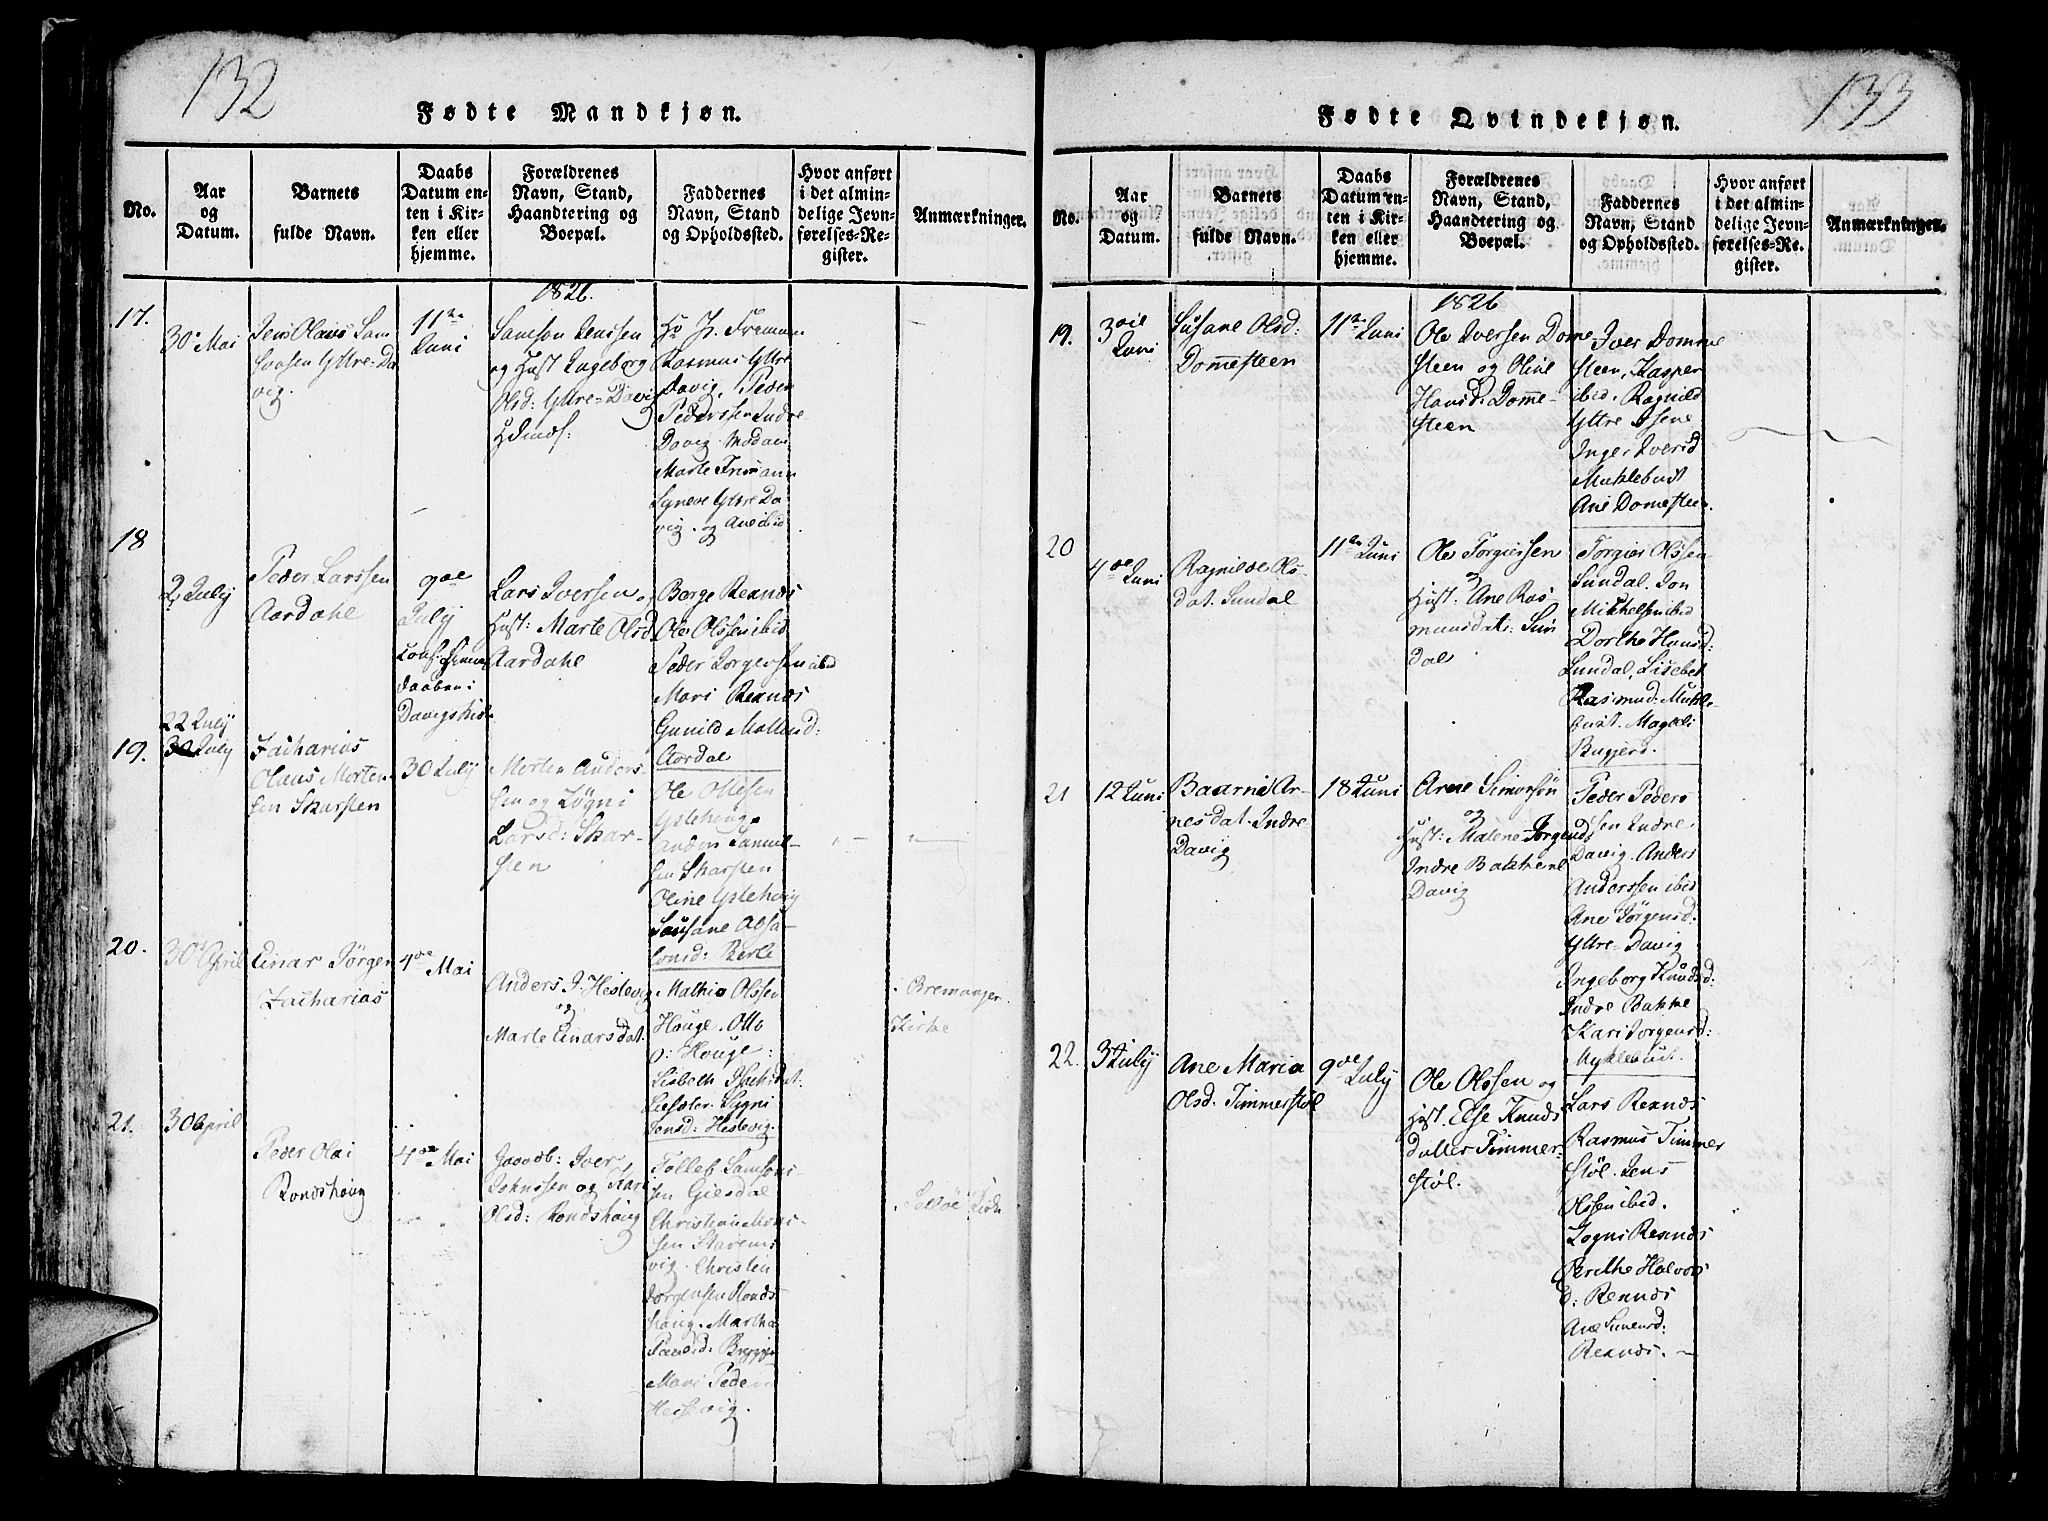 132
Fødte Mandkjøn.
No.
Aar
og
Datum.
Barnets
fulde Navn.
Daabs
Datum en-
ten i Kir-
ken eller
hjemme.
Forældrenes
Navn, Stand,
Haandtering og
Boepæl.
Faddernes
Navn, Stand
og Opholdssted.
Hvor anført
i det almin-
delige Jevn-
førelses-Re-
gister.
Anmærkninger.
1826.
17.
30 Mai
Jens Olaus Sam
Sonsen Yttre-Da
vig.
11te
Juni
Samson Jenssen
og Hust Ingeborg
Olsd: Yttre-Davig
Hr J. Frimann
Rasmus Yttre
Davig, Peder
Pederssen Indre
Davig Madam
Marte Frimann
Synève Yttre Da
vig. og Ane ibid
18
2 July
Peder Larssen
Aardahl
9de
July
daaben i
Lars Iversen og
Hust: Marte Olsd
Aardahl
Børge Rexnæs
Ole Olssen ibid
Peder Jørgenssen ibid
Mari Rexnæs
Gunild
Aardal
19.
22 July
30 July
Zacharias
Olaus Morten
sen Skarsten
30 July
Morten Anders-
sen og Løgni
Larsd: Skar-
sten
Ole Ottesen
Ystehoug
Anders Samuel-
sen Skarsten
Oline Ystehoug
Susane Absa-
lonsd: Berle
20.
30 April
Einar Jørgen
Zacharias
4de Mai
Anders J. Hestevig
og
Marte Einarsdat.
Mathis Olssen
Houge. Otto
Houge
Lisbeth
Lonsd: Hestevig.
Bremanger
Kirke
21.
30 April
Peder Olai
Rondshoug
4de Mai
Iver
Johnssen og Kari
Olsd: Rondshoug
Tolleb Samsons
sen Giesdal
Christian Mons
sen Stavens
vig. Christen
Jørgensen Ronds
houg. Martha
Mari Peders
Hestevig.
Kirke
133
Fødte Qvindekjøn.
No.
Aar
og
Datum.
Barnets
fulde Navn.
Daabs
Datum en-
ten i Kir-
ken eller
hjemme.
Forældrenes
Navn, Stand,
Haandtering og
Boepæl.
Faddernes
Navn, Stand
og Opholdssted.
Hvor anført
i det almin-
delige Jevn-
førelses-Re-
gister.
Anmærkninger.
1826
19.
3die
Juni
Susane Olsd:
Domesteen
11te Juni
Ole Iversen Dome-
steen og Oline
Hansd. Domme-
steen
Iver Domme
steen, Kasper
ibid. Ragnild
Yttre Øsene
Inger Iversd
Myklebust
Ane Domesteen.
20
4de Juni
Ragnilde Ols
dat. Sundal
11te Juni
Ole Torgiersen
og
Hust: Ane Ras
musdat: Sun
dal
Torgier Olssen
Sundal. Jon
Mikkelsen ibid
Dorthe Hansd:
Sundal, Lisebet
Rasmusd: Mykle
bust. Magdeli
21
12 Juni
Baarni Ar-
nesdat. Indre
Davig
18 Juni
Arne Simonsøn
og
Hust: Malene Jørgensd
Indre Bakkene
Davig
Peder Peders
sen Indre
Davig. Anders
Anderssen ibid
Ane Jørgensd.
Yttre-Davig
Ingeborg Knudsd:
Indre Bakke
Kari Jorgensd:
Myklebust.
22.
3 July
Ane Maria
Olsd. Timmerstøl
9de July
Ole Olssen og
Hust. Else Knuds
datter Timmer-
støl.
Lars Rexnæs
Rasmus Timmer
støl. Jens
Olssen ibid.
Logni Rexnæs
Berithe Halvors
d: Rexnæs
Ane
Rexnæs. -